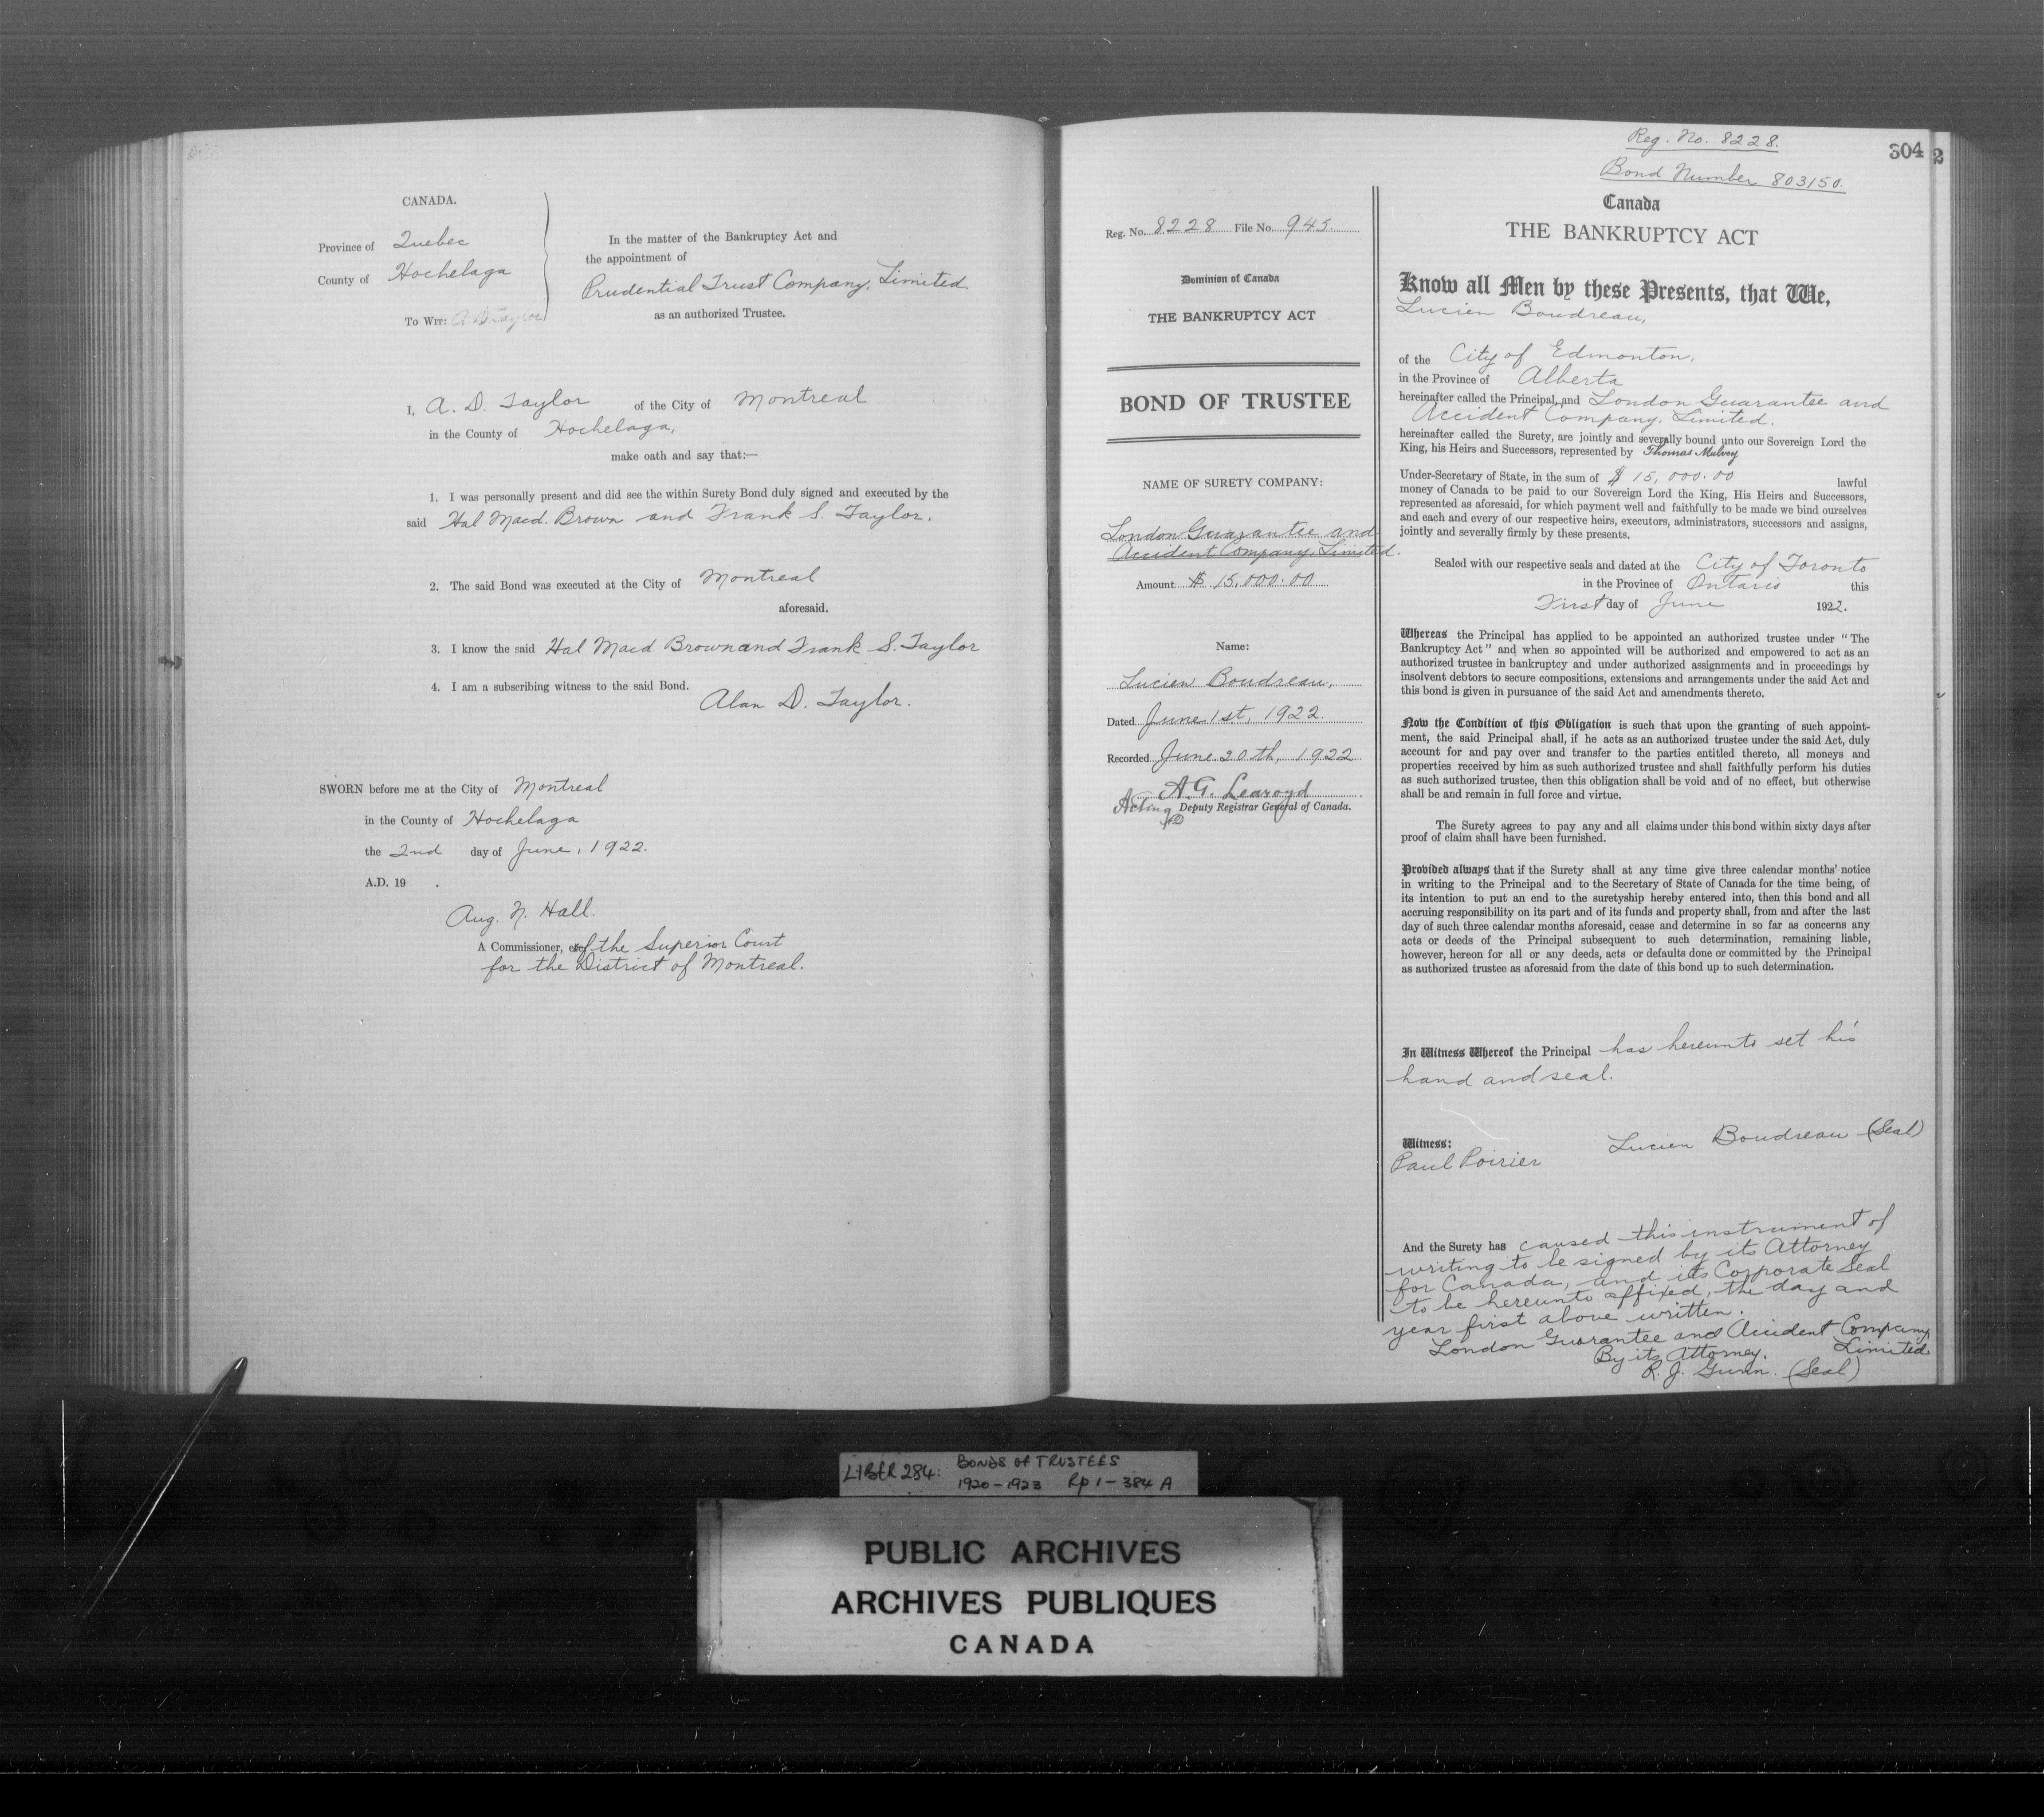 CANADA.
Province of Quebec
County of Hochelaga
To Wit: A. D. Taylor
In the matter of the Bankruptcy Act and
the appointment of
Prudential Trust Company, Limited
as an authorized Trustee.
I, A. D. Taylor of the City of Montreal
in the County of Hochelaga,
make oath and say that:—
1. I was personally present and did see the within Surety Bond duly signed and executed by the
said Hal Macd. Brown and Frank S. Taylor.
2. The said Bond was executed at the City of Montreal
aforesaid.
3. I know the said Hal Macd. Brown and Frank S. Taylor
4. I am a subscribing witness to the said Bond.
Alan D. Taylor.
SWORN before me at the City of Montreal
in the County of Hochelaga
the 2nd day of June, 1922.
A.D. 19 .
Aug. N. Hall.
A Commissioner, etc. of the Superior Court
for the District of Montreal.
Reg. No. 8228 File No. 945.
Dominion of Canada
THE BANKRUPTCY ACT
BOND OF TRUSTEE
NAME OF SURETY COMPANY:
London Guarantee and
Accident Company, Limited.
Amount $ 15,000.00
Name:
Lucien Boudreau,
Dated June 1st, 1922.
Recorded June 20th, 1922
A. G. Learoyd
Acting Deputy Registrar General of Canada.
Reg. No. 8228.
304
2
Bond Number 803150.
Canada
THE BANKRUPTCY ACT
Know all Men by these Presents, that We,
Lucien Boudreau,
of the City of Edmonton,
in the Province of Alberta
hereinafter called the Principal, and London Guarantee and
Accident Company, Limited.
hereinafter called the Surety, are jointly and severally bound unto our Sovereign Lord the
King, his Heirs and Successors, represented by Thomas Mulvey
Under-Secretary of State, in the sum of $ 15,000.00 lawful
money of Canada to be paid to our Sovereign Lord the King, His Heirs and Successors,
represented as aforesaid, for which payment well and faithfully to be made we bind ourselves
and each and every of our respective heirs, executors, administrators, successors and assigns,
jointly and severally firmly by these presents.
Sealed with our respective seals and dated at the City of Toronto
in the Province of Ontario this
First day of June 1922.
Whereas the Principal has applied to be appointed an authorized trustee under "The
Bankruptcy Act" and when so appointed will be authorized and empowered to act as an
authorized trustee in bankruptcy and under authorized assignments and in proceedings by
insolvent debtors to secure compositions, extensions and arrangements under the said Act and
this bond is given in pursuance of the said Act and amendments thereto.
Now the Condition of this Obligation is such that upon the granting of such appoint-
ment, the said Principal shall, if he acts as an authorized trustee under the said Act, duly
account for and pay over and transfer to the parties entitled thereto, all moneys and
properties received by him as such authorized trustee and shall faithfully perform his duties
as such authorized trustee, then this obligation shall be void and of no effect, but otherwise
shall be and remain in full force and virtue.
The Surety agrees to pay any and all claims under this bond within sixty days after
proof of claim shall have been furnished.
Provided always that if the Surety shall at any time give three calendar months' notice
in writing to the Principal and to the Secretary of State of Canada for the time being, of
its intention to put an end to the suretyship hereby entered into, then this bond and all
accruing responsibility on its part and of its funds and property shall, from and after the last
day of such three calendar months aforesaid, cease and determine in so far as concerns any
acts or deeds of the Principal subsequent to such determination, remaining liable,
however, hereon for all or any deeds, acts or defaults done or committed by the Principal
as authorized trustee as aforesaid from the date of this bond up to such determination.
In Witness Whereof the Principal has hereunto set his
hand and seal.
Witness:
Paul Poirier
Lucien Boudreau (Seal)
And the Surety has caused this instrument of
writing to be signed by its Attorney
for Canada, and its Corporate Seal
to be hereunto affixed, the day and
year first above written.
London Guarantee and Accident Company,
Limited.
By its Attorney.
R. J. Gunn. (Seal)
LIBER 284: BONDS OF TRUSTEES
1920-1923 Rp 1-384 A
PUBLIC ARCHIVES
ARCHIVES PUBLIQUES
CANADA